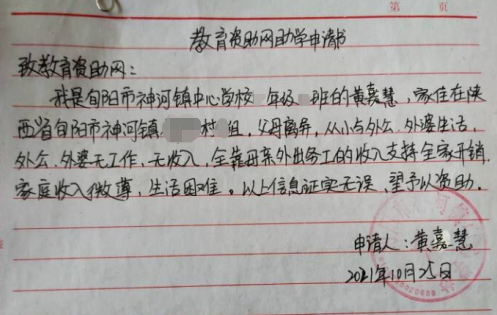 第 页
教育资助网助学申请书
致教育资助网：
我是旬阳市神河镇中心学校 年级 班的黄嘉慧，家住在陕
西省旬阳市神河镇 村 组，父母离异，从小与外公、外婆生活，
外公、外婆无工作、无收入，全靠母亲外出务工的收入支持全家开销，
家庭收入微薄，生活困难。以上信息证实无误，望予以资助。
申请人：黄嘉慧
2021年10月25日